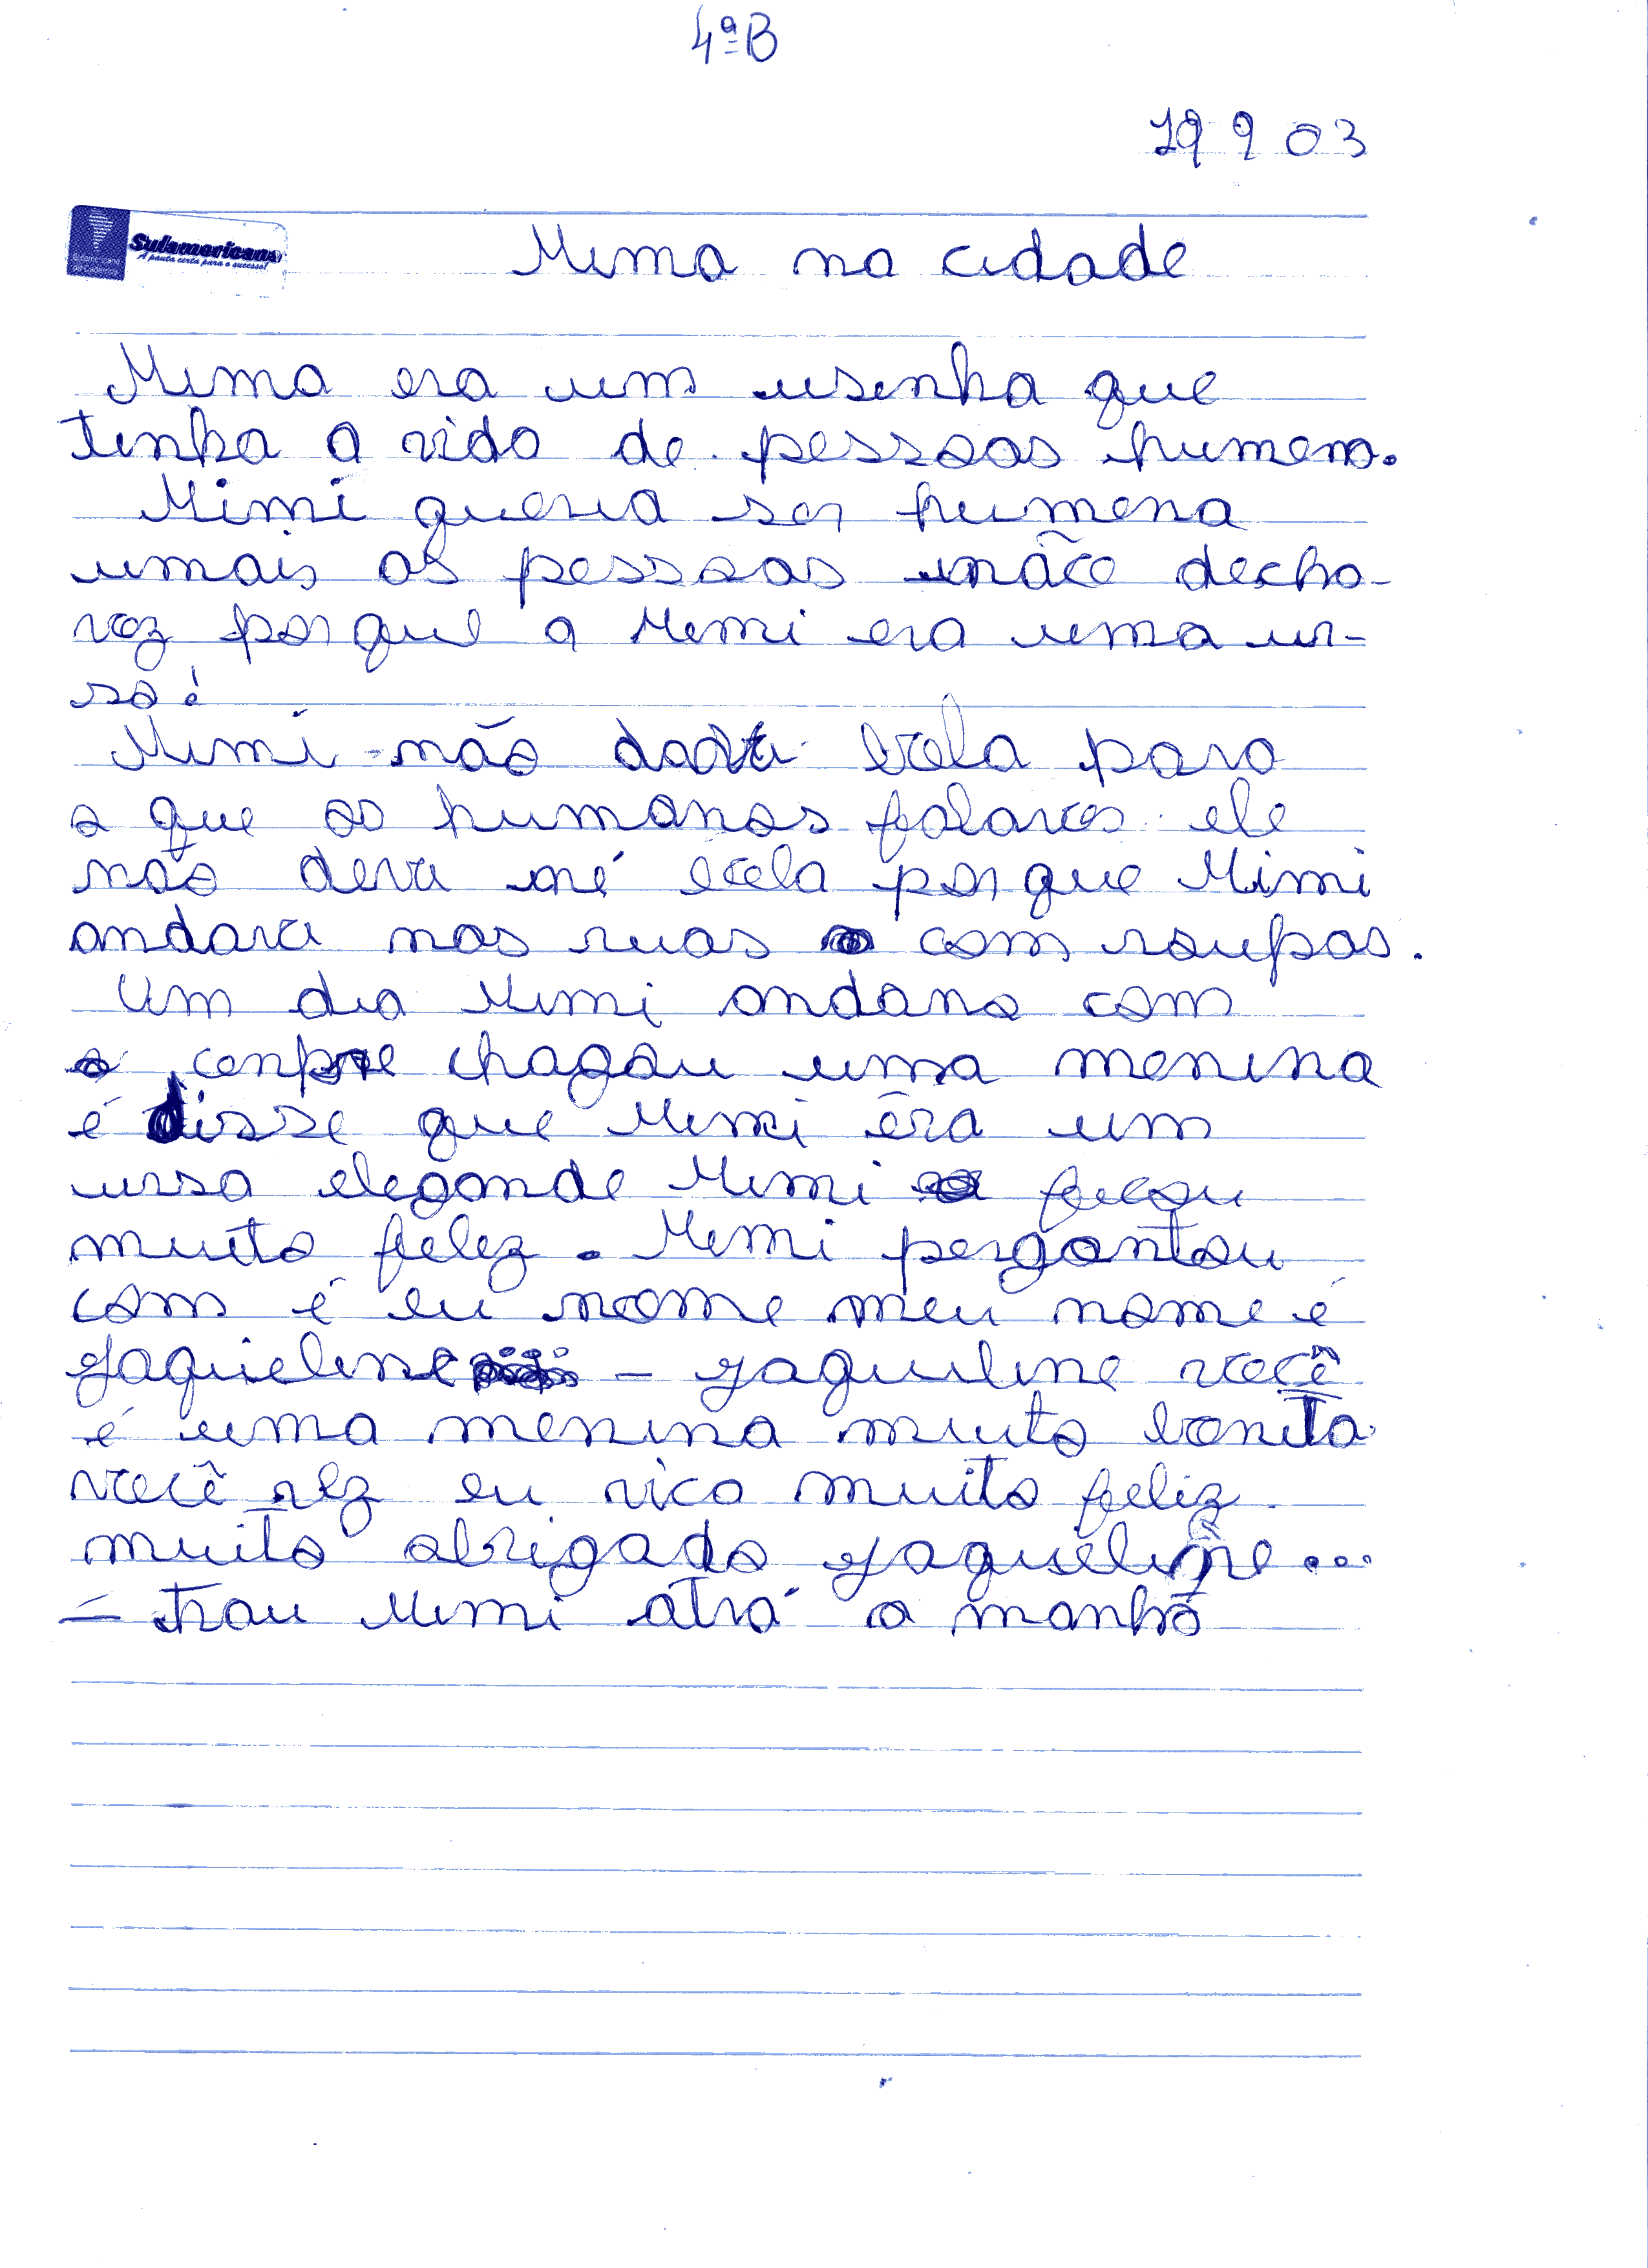 4ª B
19 9 03
Sulamericana
A pauta certa para o sucesso!
Sulamericana
de Cadernos
Mima na cidade
Mima era um usinha que
tinha a vida de pessoas humema.
Mimi queria ser humena
umais as pessoas não decha-
vaz porque a Mimi era uma ur-
sa!
Mimi não dava bola para
o que os humanos falavas ele
não deva né bola porque Mimi
andava nas ruas com roupas.
Um dia Mimi andano com
cenpre chagou uma menina
é disse que Mimi êra um
ursa elegande Mimi ficou
muito feliz. Mimi pergontou
com é eu nome meu nome é
Jaqueline – Jaquiline você
é uma menina muito bonita
você vez eu vico muito feliz
muito obrigado Jaqueline...
– Trau Mimi atrá a manhã